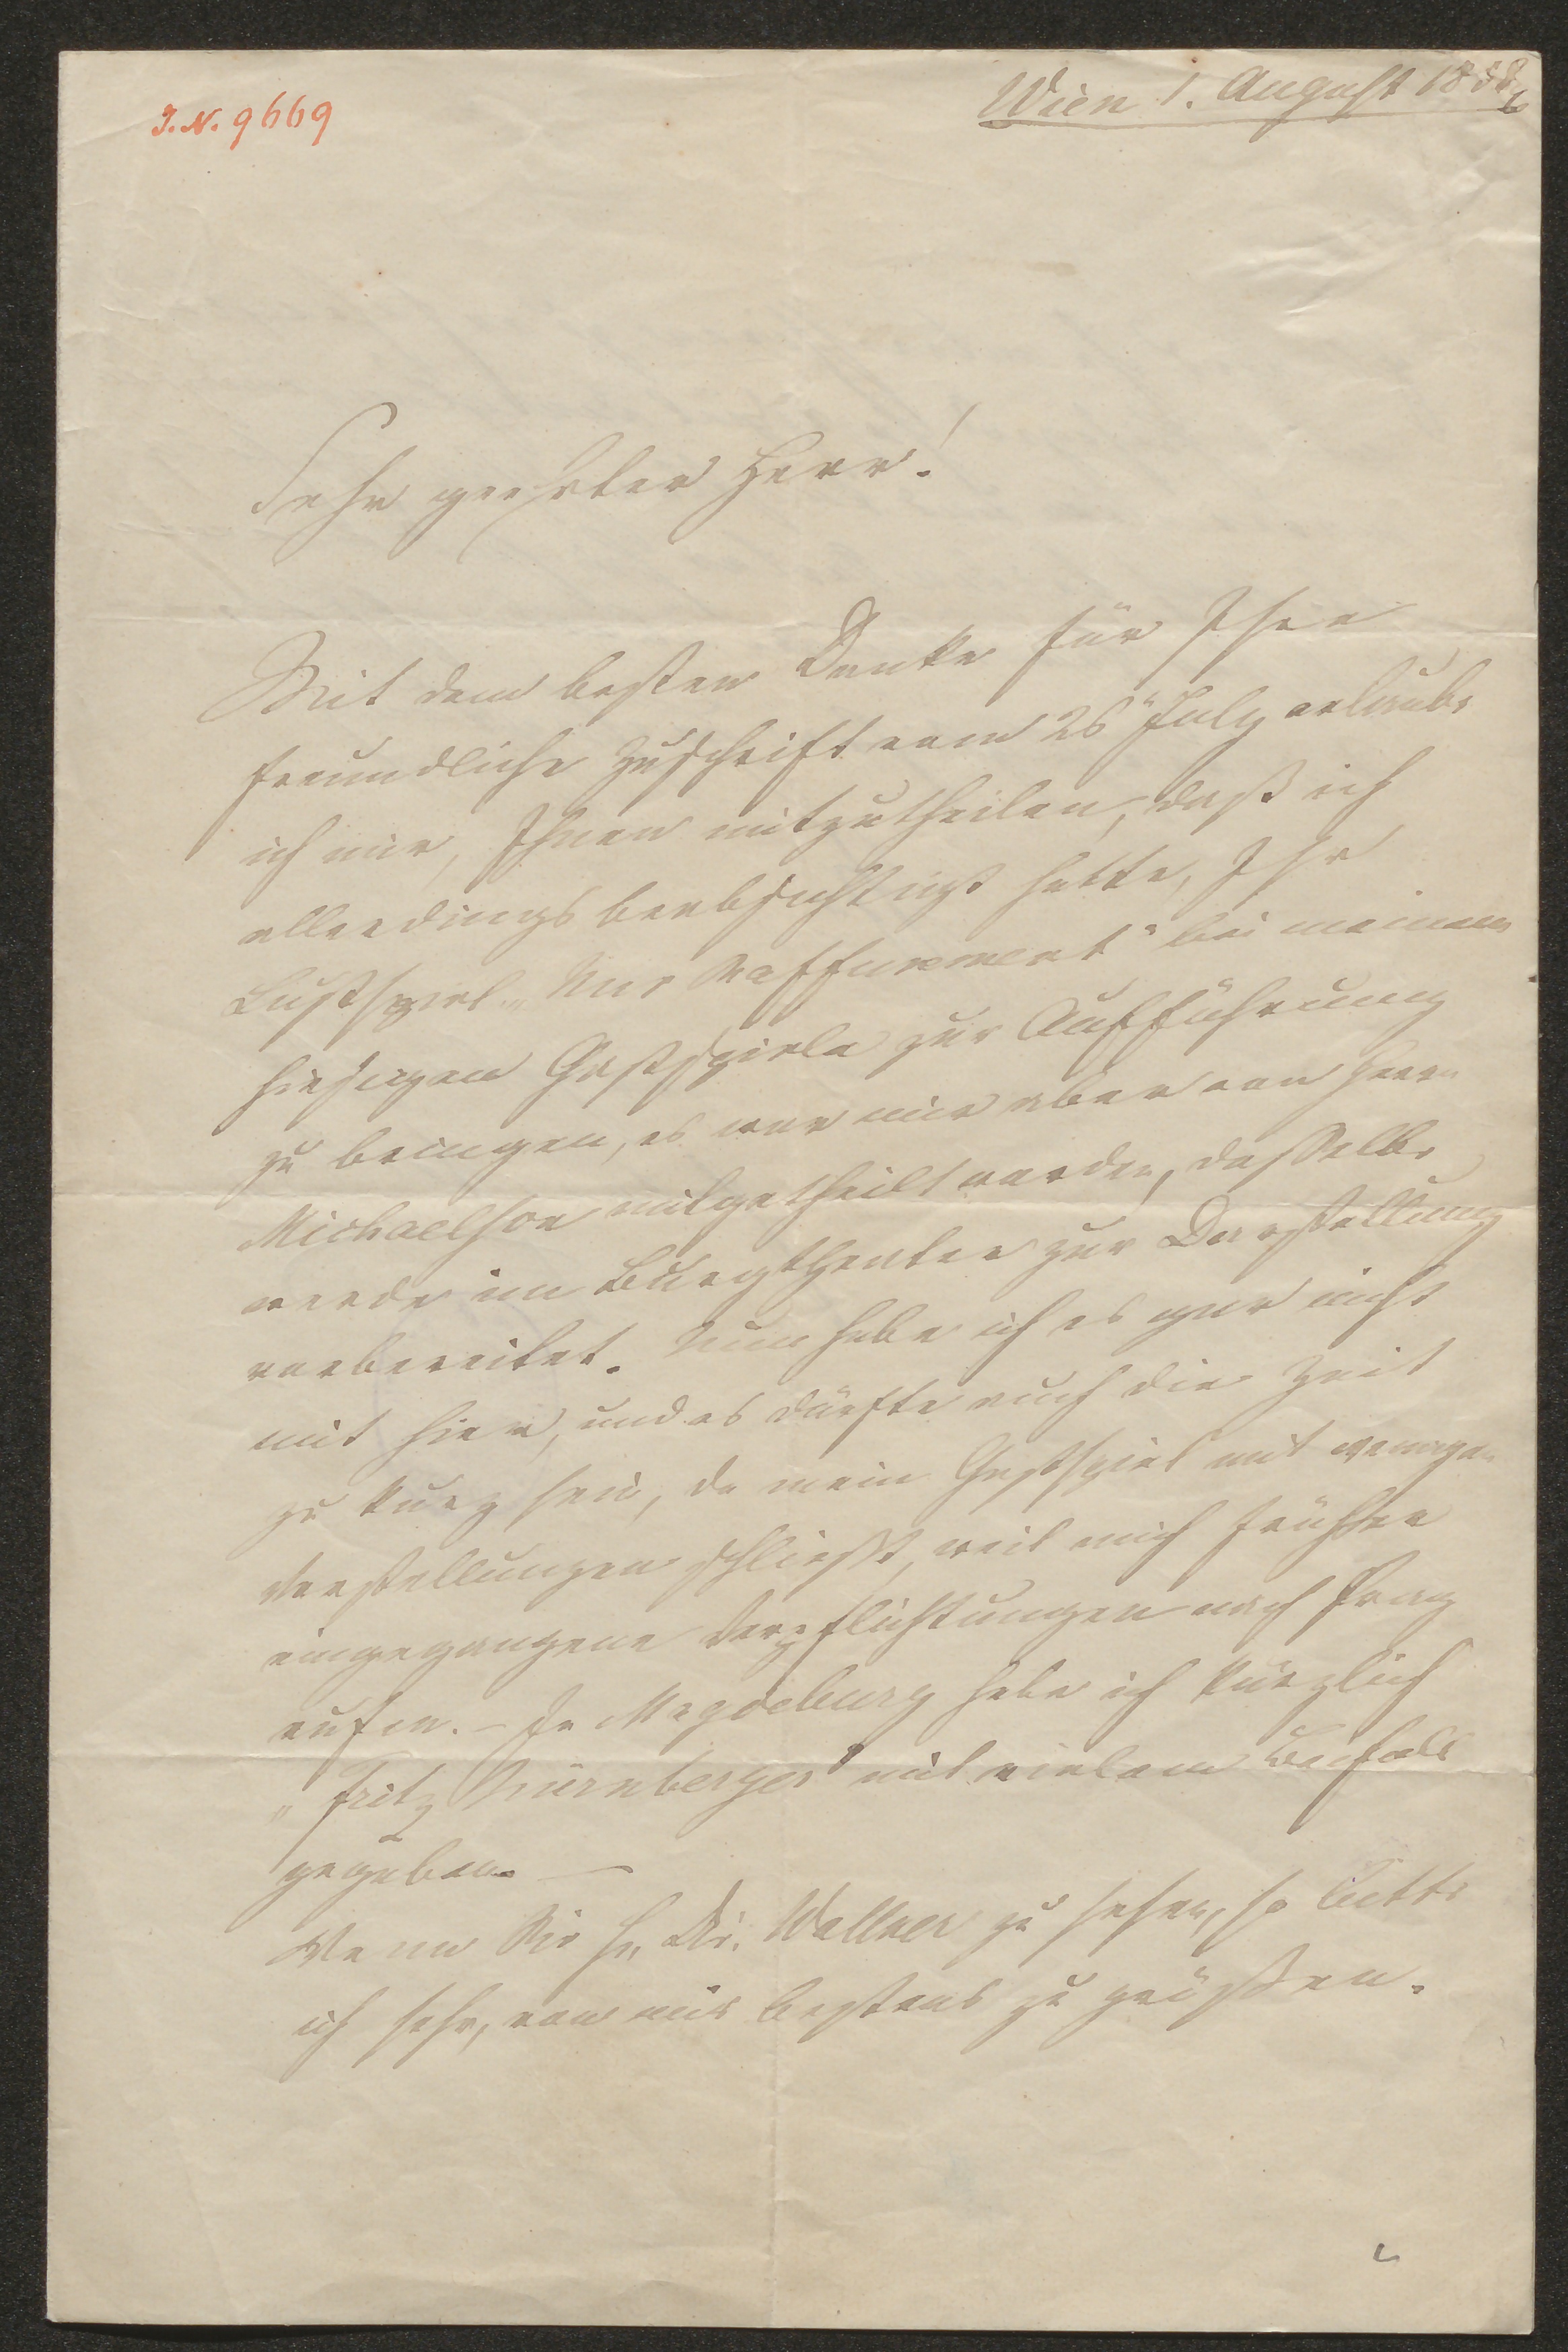 I.N. 9669
Wien 1. August 1858
Sehr geehrter Herr!
Mit dem besten Danke für Ihre
freundliche Zuschrift vom 26t July erlaube
ich mir, Ihnen mitzutheilen, daß ich
allerdings beabsichtigt hatte, Ihr
Lustspiel „Nur Raffinement" bei meinem
hiesigen Gastspiele zur Aufführung
zu bringen, es war mir aber von Herrn
Michaelson mitgetheilt worden, dasselbe
werde im Burgtheater zur Darstellung
vorbereitet. Nun habe ich es gar nicht
mit hier, und es dürfte auch die Zeit
zu kurz sein, da mein Gastspiel mit wenigen
Vorstellungen schließt, weil mich früher
eingegangene Verpflichtungen nach Prag
rufen. – In Magdeburg habe ich kürzlich
„Fritz Nürnberger" mit vielem Beifall
gegeben. –
Wenn Sie H. Dir. Wallner zu sehen, so bitte
ich sehr, von mir bestens zu grüßen.